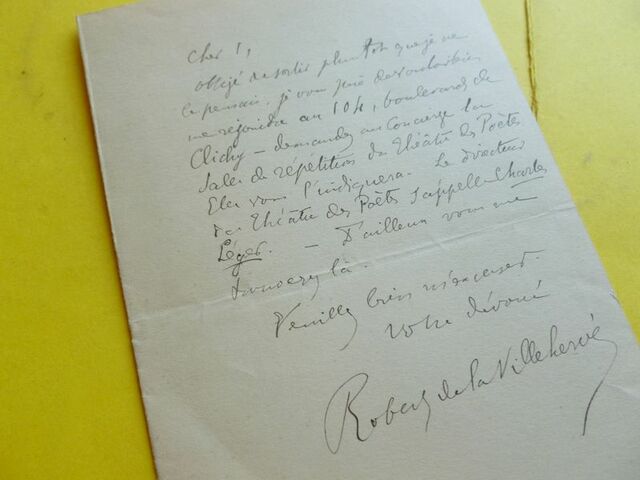 Cher 
obligé de sortir plus tôt que je ne
le pensais, je vous prie de vouloir bien
me rejoindre au 104, boulevard de
Clichy – demandez au Concierge la
Salle de répétitions du Théâtre des Poètes
Elle vous l'indiquera. Le directeur
du Théâtre des Poètes s'appelle Charles
Léger. – D'ailleurs vous me
trouverez là.
Veuillez bien m'excuser.
votre dévoué
Robert de la Villehervé